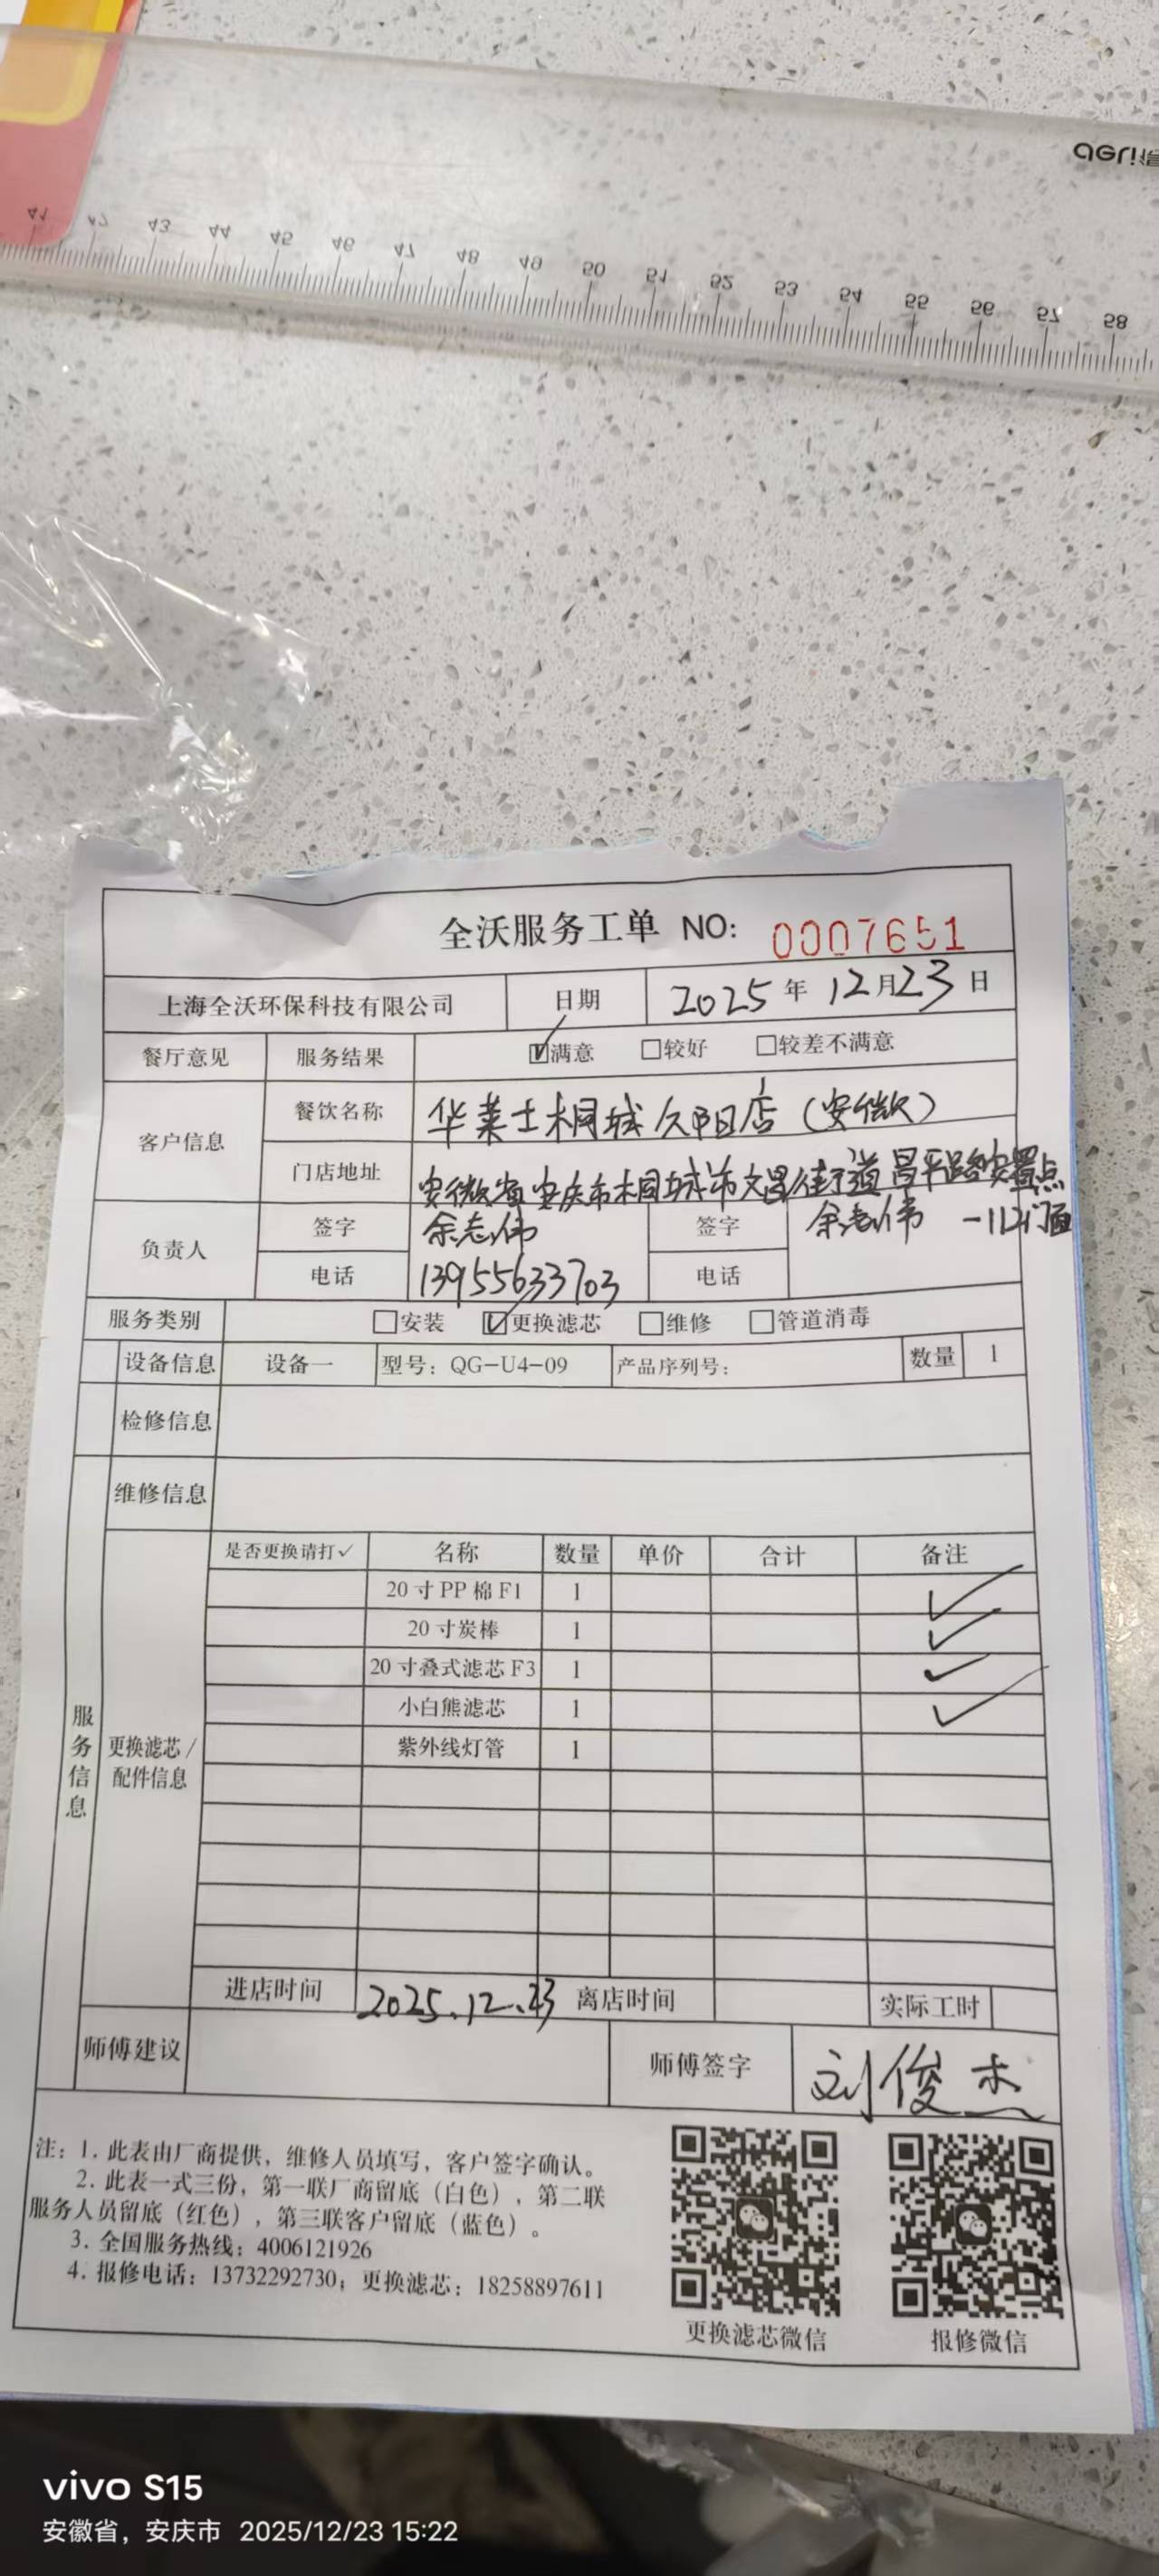 deli得
41 42 43 44 45 46 47 48 49 50 51 52 53 54 55 56 57 58
全沃服务工单 NO: 0007651
上海全沃环保科技有限公司 日期 2025年12月23日
餐厅意见 服务结果 ☑满意 □较好 □较差不满意
客户信息 餐饮名称 华莱士桐城久阳店(安徽)
门店地址 安徽省安庆市桐城市文昌街道昌平路安置点
-112门面
负责人 签字 余志伟 签字 余志伟
电话 13955633703 电话
服务类别 □安装 ☑更换滤芯 □维修 □管道消毒
设备信息 设备一 型号:QG-U4-09 产品序列号: 数量 1
检修信息
维修信息
服务信息
更换滤芯/
配件信息
是否更换请打✓ 名称 数量 单价 合计 备注
20寸PP棉F1 1 ✓
20寸炭棒 1 ✓
20寸叠式滤芯F3 1 ✓
小白熊滤芯 1 ✓
紫外线灯管 1
进店时间 2025.12.23 离店时间 实际工时
师傅建议 师傅签字 刘俊杰
注:1. 此表由厂商提供,维修人员填写,客户签字确认。
2. 此表一式三份,第一联厂商留底(白色),第二联
服务人员留底(红色),第三联客户留底(蓝色)。
3. 全国服务热线:4006121926
4. 报修电话:13732292730;更换滤芯:18258897611
更换滤芯微信 报修微信
vivo S15
安徽省,安庆市 2025/12/23 15:22